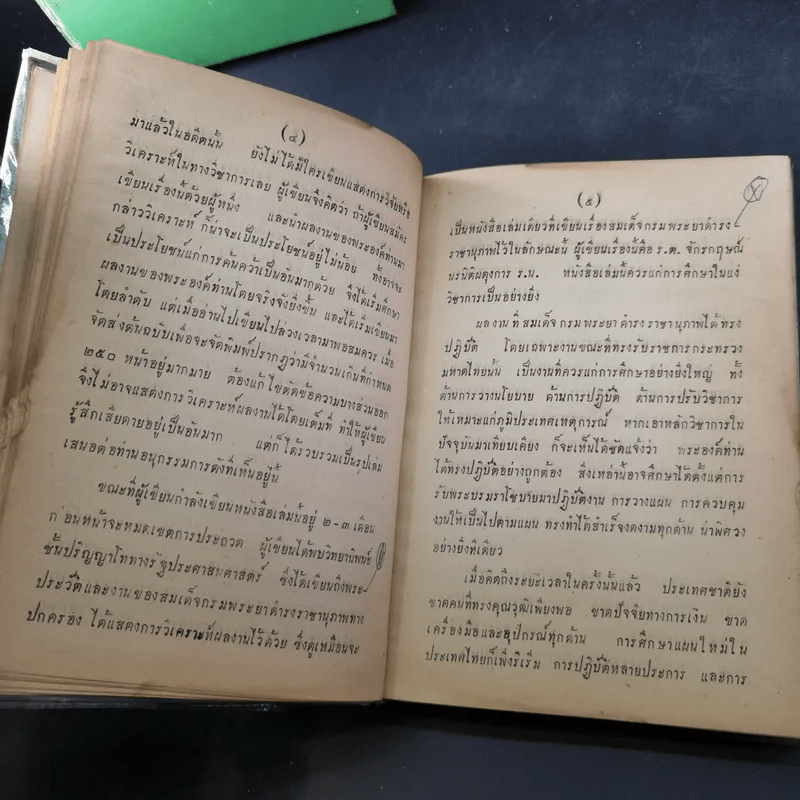 (๔)
มาแล้วในอดีตนั้น ยังไม่ได้มีใครเขียนแสดงการวิจัยหรือ
วิเคราะห์ในทางวิชาการเลย ผู้เขียนจึงคิดว่า ถ้าผู้เขียนสมัคร
เขียนเรื่องนี้ด้วยผู้หนึ่ง และนำผลงานของพระองค์ท่านมา
กล่าววิเคราะห์ ก็น่าจะเป็นประโยชน์อยู่ไม่น้อย ทั้งอาจจะ
เป็นประโยชน์แก่การค้นคว้าเป็นอันมากด้วย จึงได้เริ่มศึกษา
ผลงานของพระองค์ท่านโดยจริงจังยิ่งขึ้น และได้เริ่มเขียนมา
โดยลำดับ แต่เมื่ออ่านไปเขียนไปล่วงเวลามาพอสมควร เมื่อ
จัดส่งต้นฉบับเพื่อจะจัดพิมพ์ปรากฏว่ามีจำนวนเกินที่กำหนด
๒๕๐ หน้าอยู่มากมาย ต้องแก้ไขตัดข้อความบางส่วนออก
จึงไม่อาจแสดงการวิเคราะห์ผลงานได้โดยเต็มที่ ทำให้ผู้เขียน
รู้สึกเสียดายอยู่เป็นอันมาก แต่ก็ได้รวบรวมเป็นรูปเล่ม
เสนอต่อท่านอนุกรรมการดังที่เห็นอยู่นี้
ขณะที่ผู้เขียนกำลังเขียนหนังสือเล่มนี้อยู่ ๒-๓ เดือน
ก่อนหน้าจะหมดเขตการประกวด ผู้เขียนได้พบวิทยานิพนธ์
ชั้นปริญญาโททางรัฐประศาสนศาสตร์ ซึ่งได้เขียนถึงพระ-
ประวัติและงานของสมเด็จกรมพระยาดำรงราชานุภาพทาง
ปกครอง ได้แสดงการวิเคราะห์ผลงานไว้ด้วย ซึ่งดูเหมือนจะ
(๕)
เป็นหนังสือเล่มเดียวที่เขียนเรื่องสมเด็จกรมพระยาดำรง
ราชานุภาพไว้ในลักษณะนี้ ผู้เขียนเรื่องนี้คือ ร.ต. จักรกฤษณ์
นรนิติผดุงการ ร.น. หนังสือเล่มนี้ควรแก่การศึกษาในแง่
วิชาการเป็นอย่างยิ่ง
ผลงานที่สมเด็จกรมพระยาดำรงราชานุภาพได้ทรง
ปฏิบัติ โดยเฉพาะงานขณะที่ทรงรับราชการกระทรวง
มหาดไทยนั้น เป็นงานที่ควรแก่การศึกษาอย่างยิ่งใหญ่ ทั้ง
ด้านการวางนโยบาย ด้านการปฏิบัติ ด้านการปรับวิชาการ
ให้เหมาะแก่ภูมิประเทศเหตุการณ์ หากเอาหลักวิชาการใน
ปัจจุบันมาเทียบเคียง ก็จะเห็นได้ชัดแจ้งว่า พระองค์ท่าน
ได้ทรงปฏิบัติอย่างถูกต้อง สิ่งเหล่านี้อาจศึกษาได้ตั้งแต่การ
รับพระบรมราโชบายมาปฏิบัติงาน การวางแผน การควบคุม
งานให้เป็นไปตามแผน ทรงทำได้สำเร็จงดงามทุกด้าน น่าพิศวง
อย่างยิ่งทีเดียว
เมื่อคิดถึงระยะเวลาในครั้งนั้นแล้ว ประเทศชาติยัง
ขาดคนที่ทรงคุณวุฒิเพียงพอ ขาดปัจจัยทางการเงิน ขาด
เครื่องมือและอุปกรณ์ทุกด้าน การศึกษาแผนใหม่ใน
ประเทศไทยก็เพิ่งริเริ่ม การปฏิบัติหลายประการ และการ